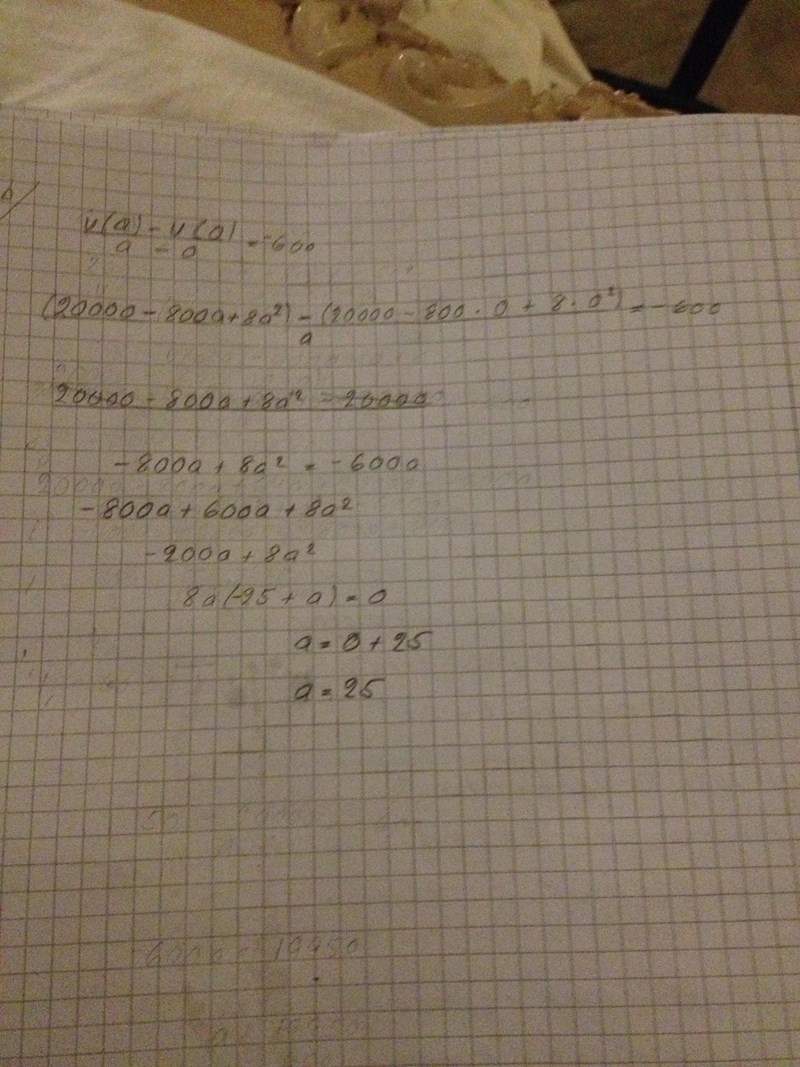 V(a) - V(0)
a - 0 = -600
(20000 - 800a + 8a²) - (20000 - 800 · 0 + 8 · 0²) = -600
a
20000 - 800a + 8a² - 20000
-800a + 8a² = -600a
-800a + 600a + 8a²
-200a + 8a²
8a(-25 + a) = 0
a = 0 + 25
a = 25